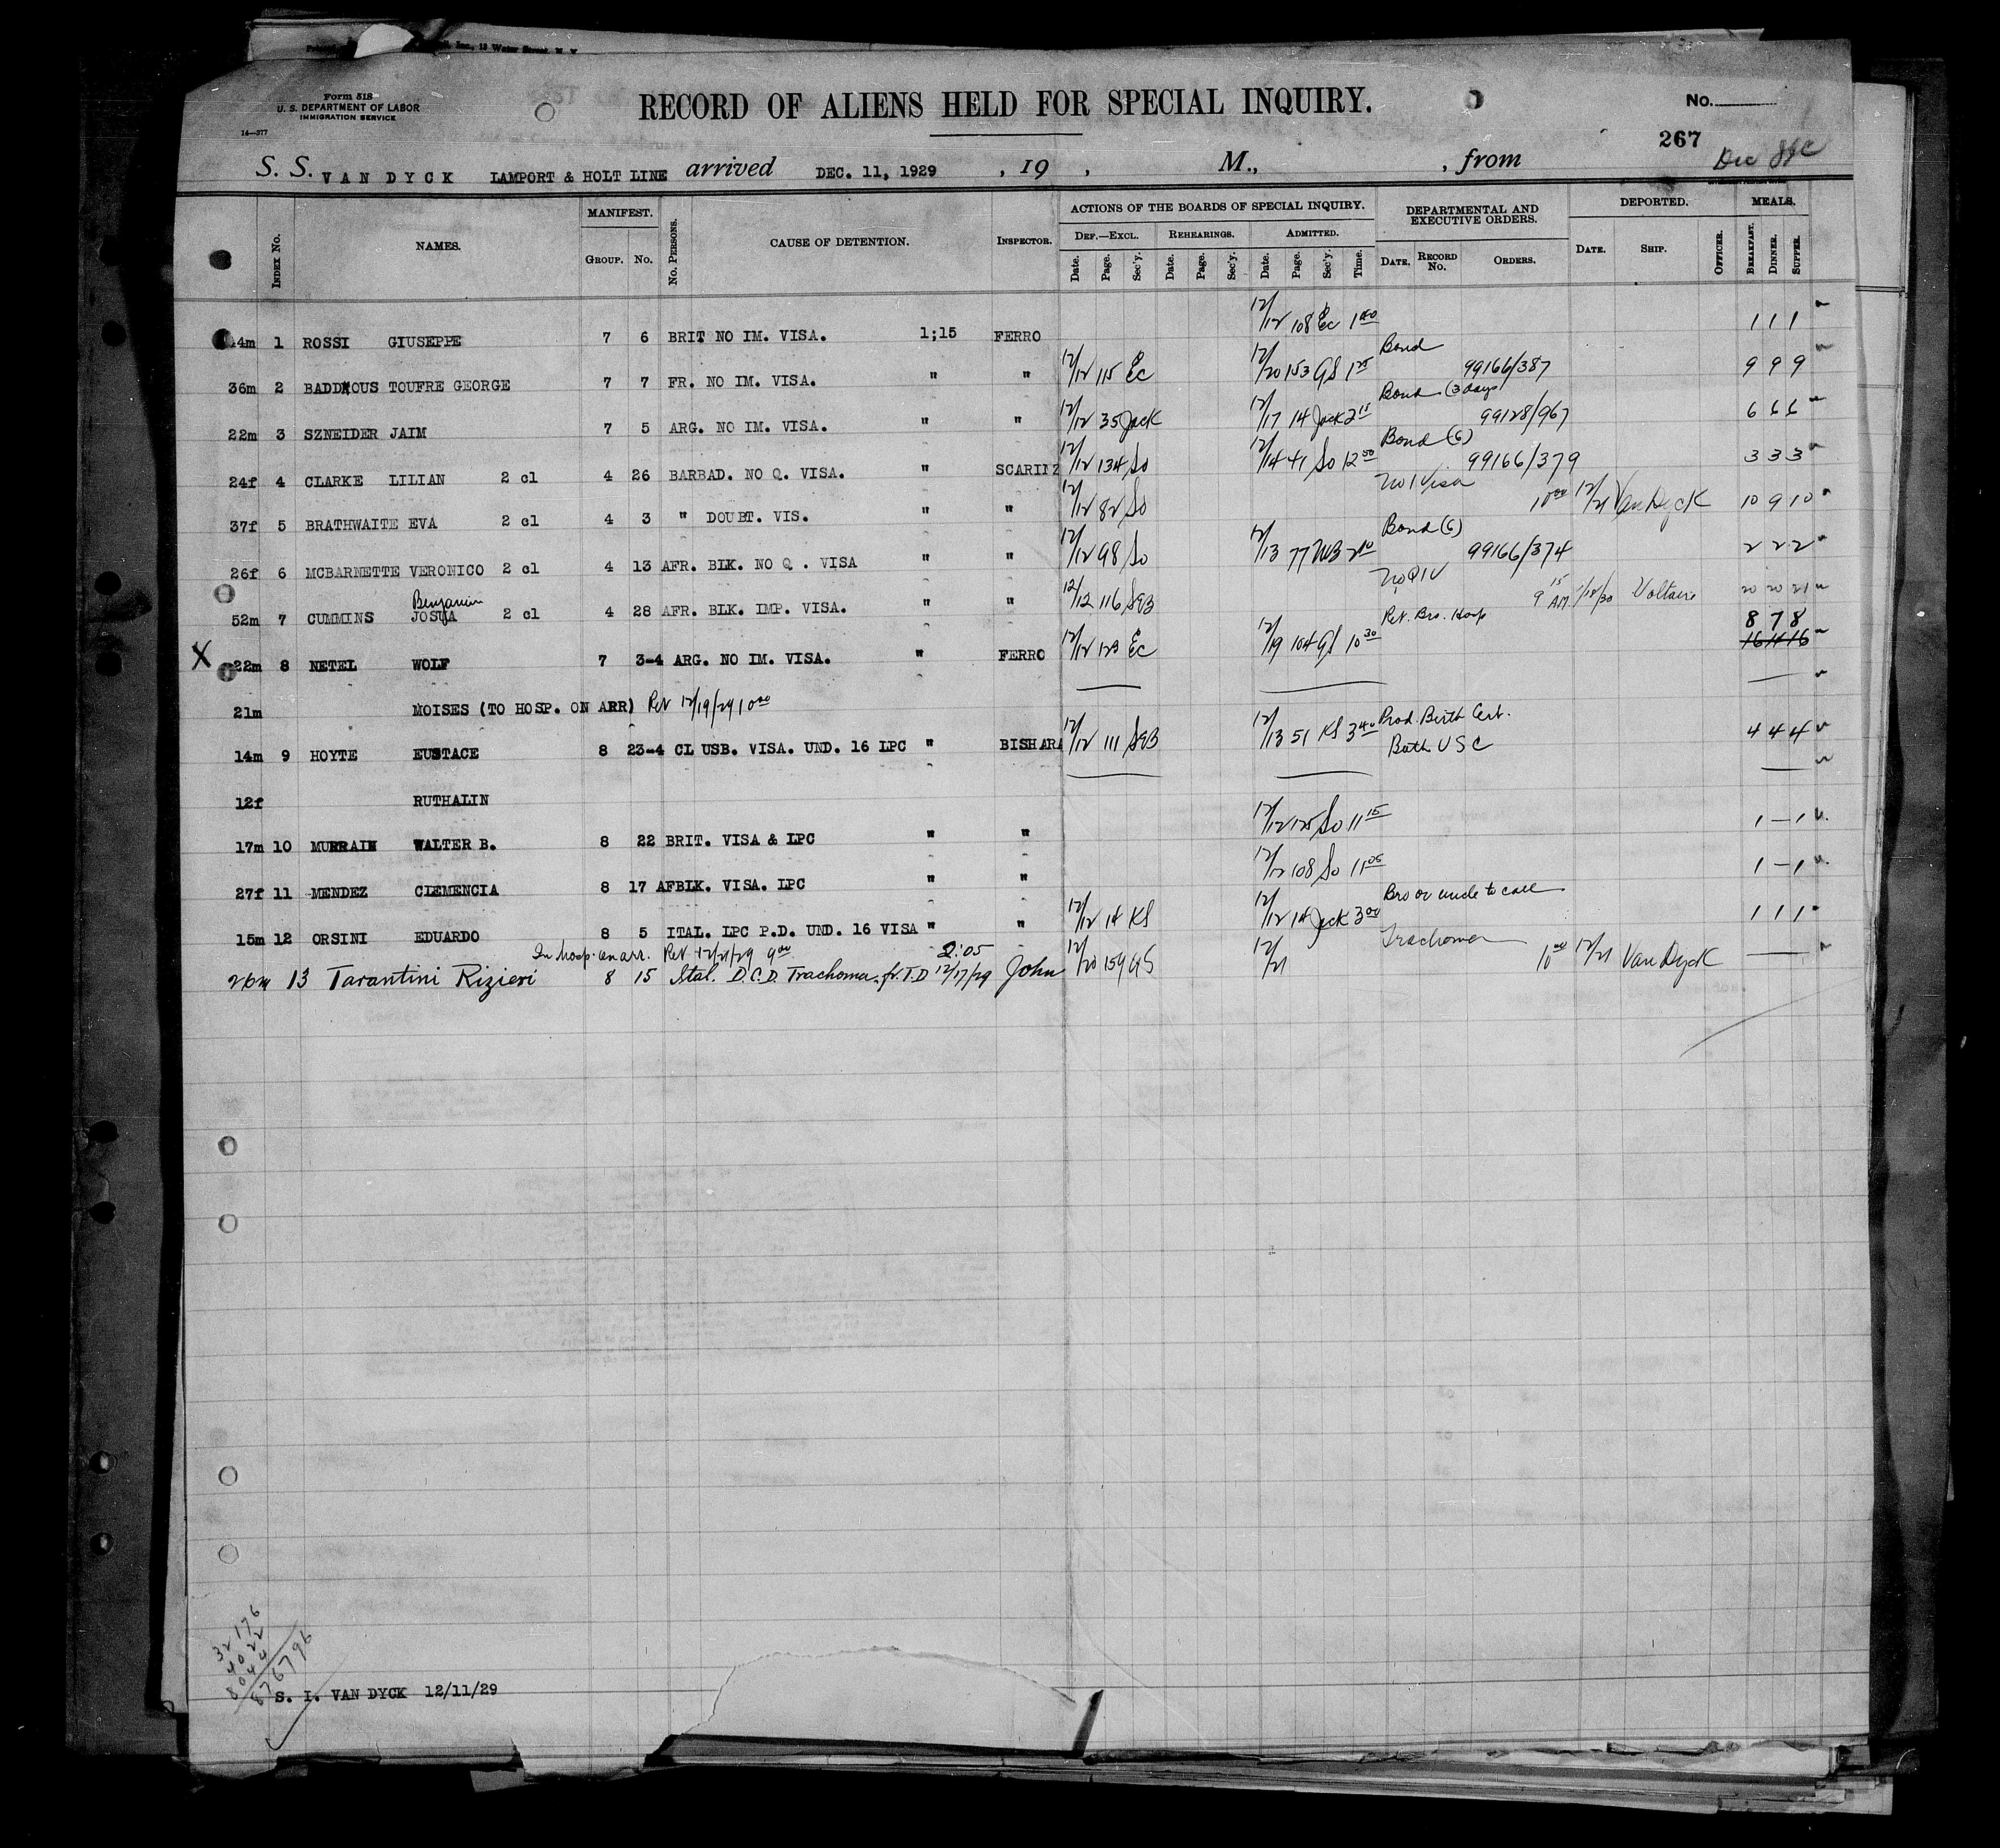 Inc., 13 Water Street, N. Y.
Form 518
U. S. DEPARTMENT OF LABOR
IMMIGRATION SERVICE
14—377
RECORD OF ALIENS HELD FOR SPECIAL INQUIRY.
No.
267
S. S. VAN DYCK LAMPORT & HOLT LINE arrived DEC. 11, 1929 , 19 , M., , from
MANIFEST. ACTIONS OF THE BOARDS OF SPECIAL INQUIRY. DEPARTMENTAL AND EXECUTIVE ORDERS. DEPORTED. MEALS.
INDEX No. NAMES. GROUP. No. No. PERSONS. CAUSE OF DETENTION. INSPECTOR. DEF.—EXCL. REHEARINGS. ADMITTED. DATE. RECORD No. ORDERS. DATE. SHIP. OFFICER. BREAKFAST. DINNER. SUPPER.
Date. Page. Sec'y. Date. Page. Sec'y. Date. Page. Sec'y. Time.
4m 1 ROSSI GIUSEPPE 7 6 BRIT NO IM. VISA. 1;15 FERRO 12/12 108 Ec 1 1 1 1
36m 2 BADDXOUS TOUFRE GEORGE 7 7 FR. NO IM. VISA. " " 12/12 115 Ec 12/20 153 GS 1 Bond 99166/387 9 9 9
22m 3 SZNEIDER JAIM 7 5 ARG. NO IM. VISA. " " 12/12 35 Jack 12/17 14 Jack 2 15 Bond (3 days) 99128/967 6 6 6
24f 4 CLARKE LILIAN 2 cl 4 26 BARBAD. NO Q. VISA. " SCARINZ 12/12 134 So 12/14 41 So 12 50 Bond (6) 99166/379 3 3 3
37f 5 BRATHWAITE EVA 2 cl 4 3 " DOUBT. VIS. " " 12/12 82 So No I Visa 10 00 12/21 Van Dyck 10 9 10
26f 6 MCBARNETTE VERONICO 2 cl 4 13 AFR. BLK. NO Q . VISA " " 12/12 98 So 12/13 77 Bond (6) 99166/374 2 2 2
52m 7 CUMMINS Benjamin JOSUA 2 cl 4 28 AFR. BLK. IMP. VISA. " " 12/12 116 SGB No QIV 9 15 AM 1/18/30 Voltaire 20 20 21
X 22m 8 NETEL WOLF 7 3-4 ARG. NO IM. VISA. " FERRO 12/12 123 Ec 12/19 104 GS 10 30 Ret. Bro. Hosp 8 7 8
21m MOISES (TO HOSP. ON ARR) Ret 12/19/29 10 00
14m 9 HOYTE EUSTACE 8 23-4 CL USB. VISA. UND. 16 LPC " BISHARA 12/12 111 SGB 12/13 51 KS 3 40 Prod. Birth Cert. Both USC 4 4 4
12f RUTHALIN
17m 10 MURRAIN WALTER B. 8 22 BRIT. VISA & LPC " " 12/12 125 So 11 15 1 — 1
27f 11 MENDEZ CLEMENCIA 8 17 AFBLK. VISA. LPC " " 12/12 108 So 11 05 1 — 1
15m 12 ORSINI EDUARDO 8 5 ITAL. LPC P.D. UND. 16 VISA " " 12/12 14 KS 12/12 14 Jack 3 00 Bro or uncle to call 1 1 1
In hosp. on arr. Ret 12/21/29 9 00 2:05
26m 13 Tarantini Rizieri 8 15 Ital. D.C.D. Trachoma. fr. T.D 12/17/29 John 12/20 159 GS 12/21 Trachoma 10 00 12/21 Van Dyck
32176
4022
8044
876796
S. I. VAN DYCK 12/11/29